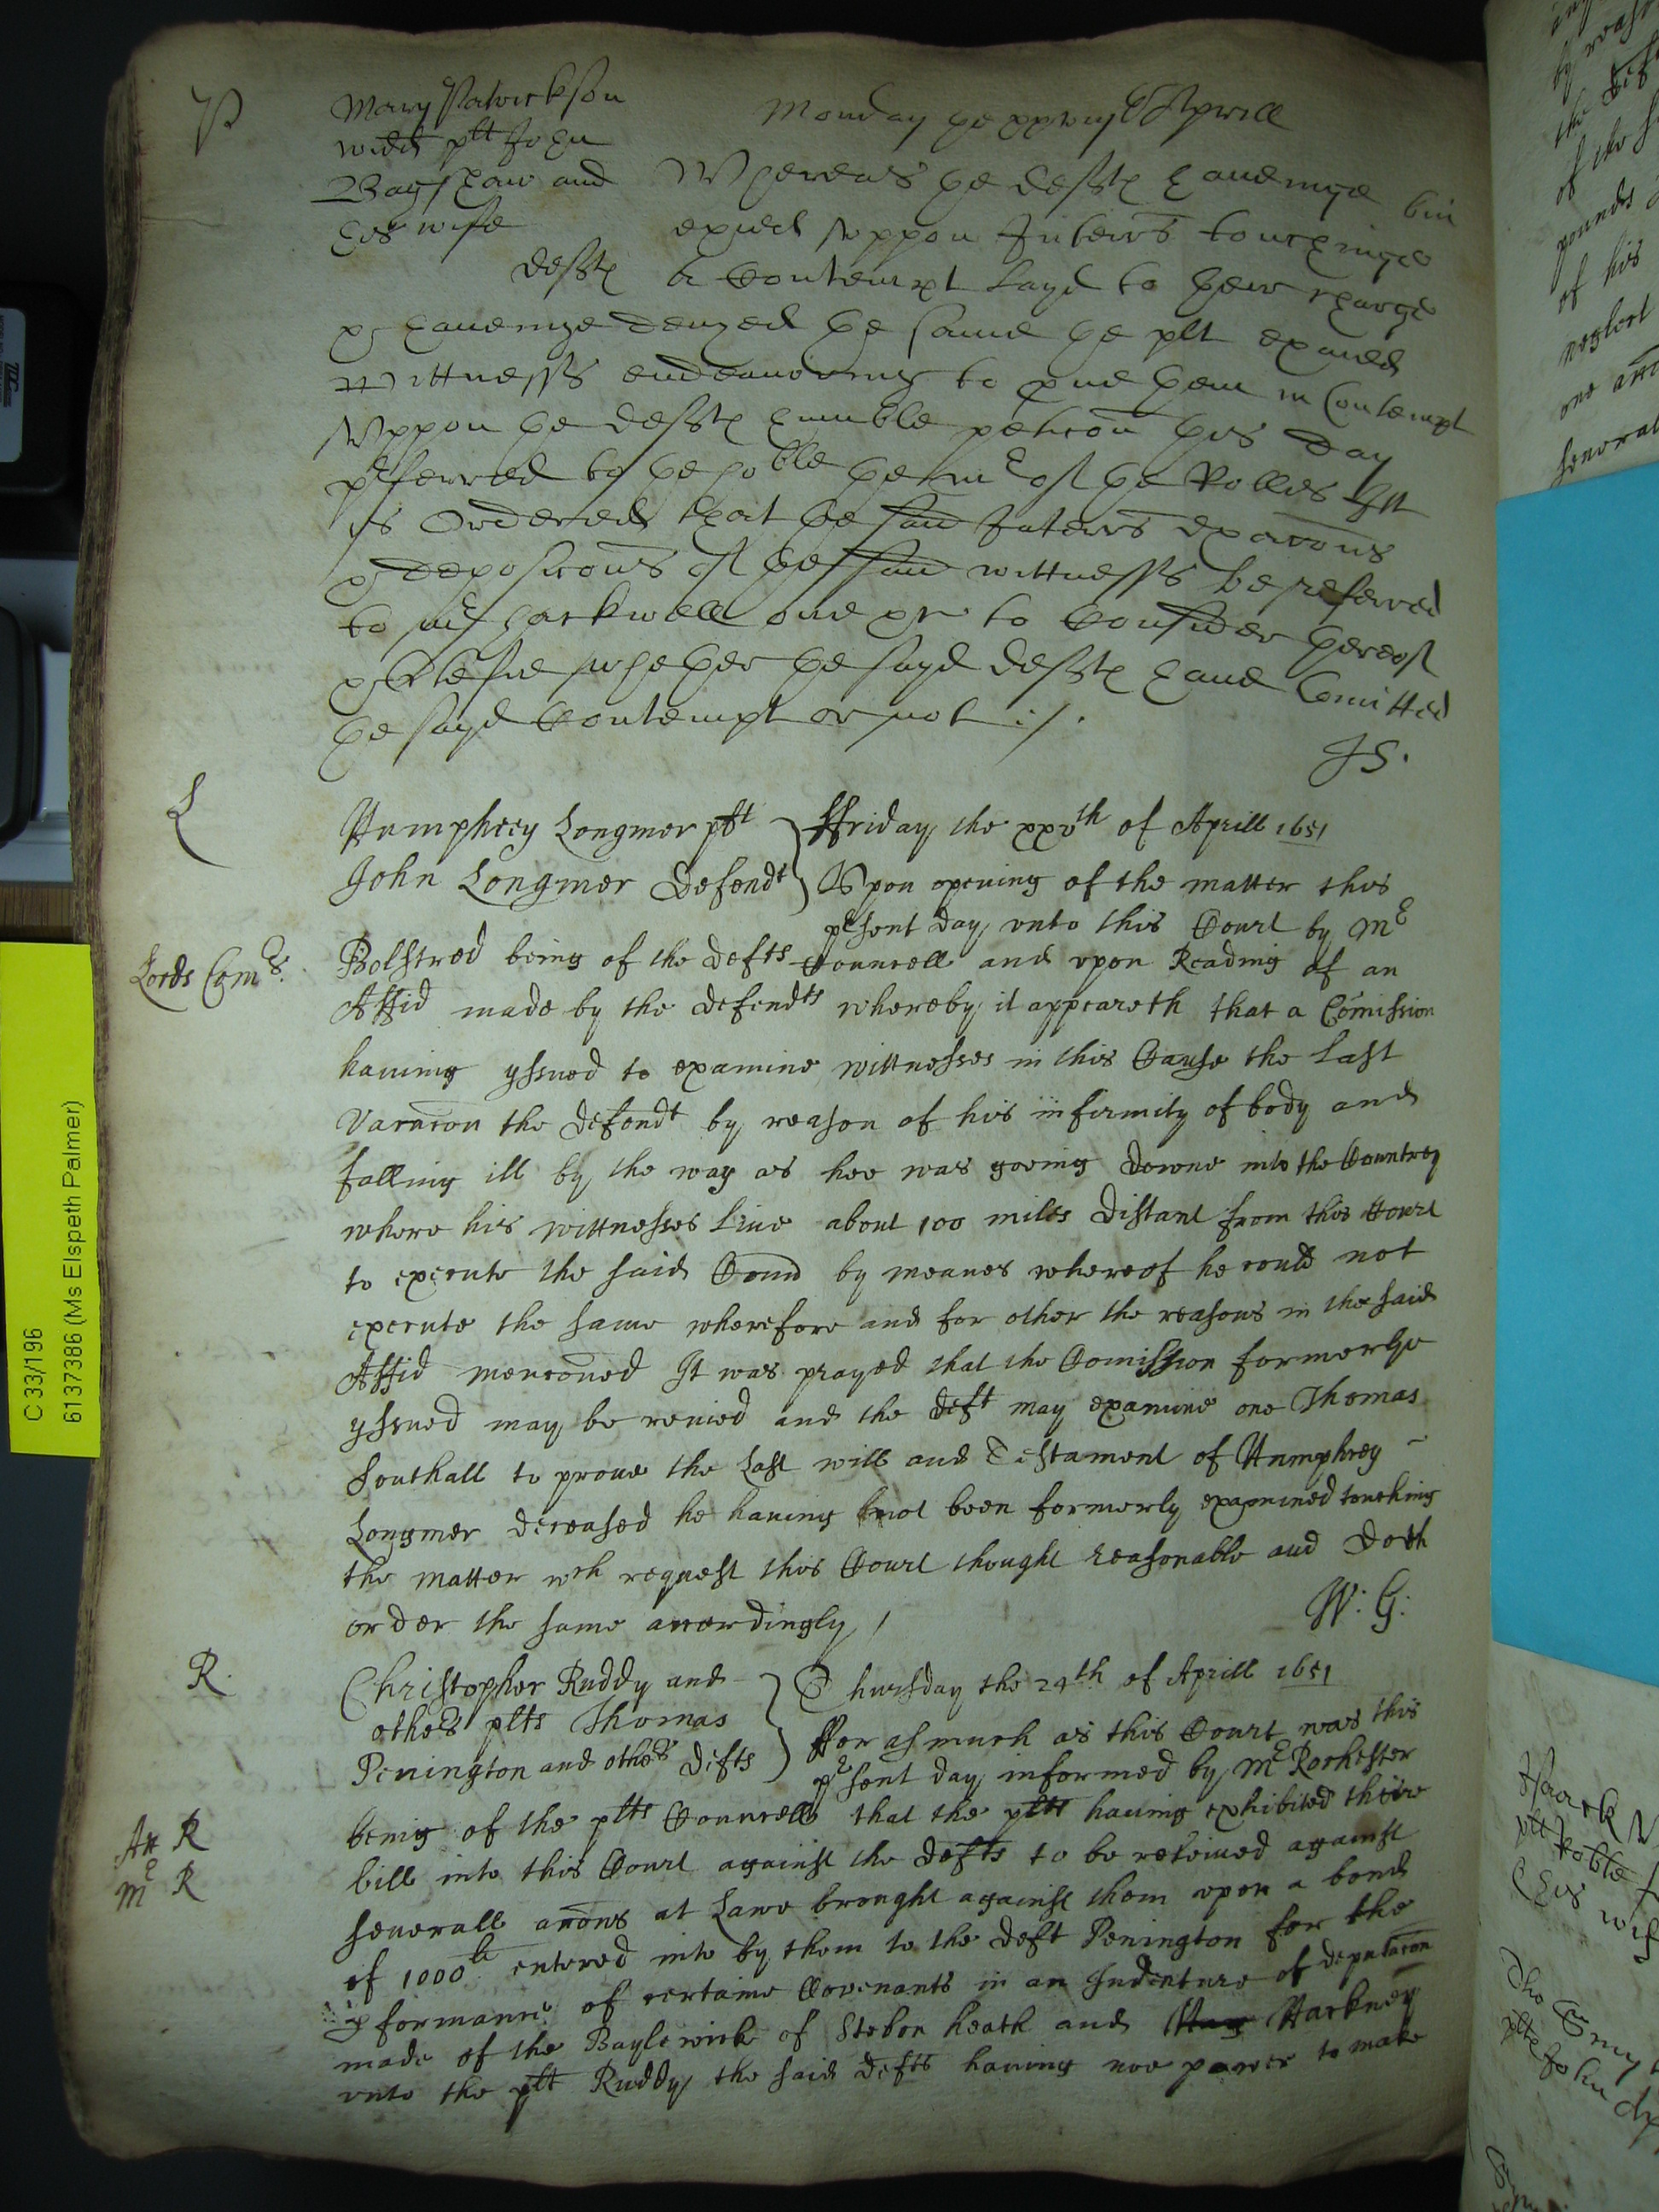 P
Mary Patrickson
widd plt John
Bagshaw and
his wife
defts
Monday ye xxviijth Aprill
Whereas ye defts haueinge bin
exaied vppon Interrs touchinge
a Contempt layd to their charge
& haueinge denyed ye same ye plt exaied
wittnesss endeauoring to proue them in Contempt
Vppon ye defts humble peticon this day
preferred to ye ho:ble ye mr of ye Rolles It
is Ordered that ye said Interrs exaicons
& deposicons of ye said wittnesss be referred
to mr Sackwell one &c to Consider thereof
& Certefie whether ye sayd defts haue Comitted
ye sayd Contempt or not ./.
JS.
L
Lords Comrs.
Humphrey Longmer plt
John Longmer Defendt
ffriday the xxvth of Aprill 1651
Vpon opening of the matter this
prsent day vnto this Court by Mr
Bolstred being of the defts Councell and vpon Reading of an
Affid made by the defendts whereby it appeareth that a Comission
hauing yssued to examine wittnesses in this Cause the last
Vacacon the defendt by reason of his infirmity of body and
falling ill by the way as hee was goeing downe into the Countrey
where his wittnesses liue about 100 miles distant from this Court
to execute the said Comd by meanes whereof he could not
execute the same wherefore and for other the reasons in the said
Affid menconed It was prayed that the Comission formerlye
yssued may be renied and the deft may examine one Thomas
Southall to proue the last will and Testament of Humphrey
Longmer deceased he hauing not been formerly examined touching
the matter wch request this Court thought reasonable and doth
order the same accordingly /
W: G:
R.
Christopher Ruddy and
others plts Thomas
Penington and others defts
Thursday the 24th of Aprill 1651
fforasmuch as this Court was this
prsent day informed by Mr Rochester
At R
Mr R
being of the plts Councell that the plts hauing exhibited theire
bill into this Court against the defts to be releiued against
seuerall accons at Lawe brought against them vpon a bond
of 1000li entered into by them to the deft Penington for the
pformance of certaine Covenants in an Indenture of deputacon
made of the Baylewick of Steben heath and Hackney
vnto the plt Ruddy the said defts hauing noe power to make
C 33/196
61373386 (Ms Elspeth Palmer)